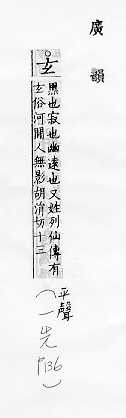 廣韻
玄
黑也寂也幽遠也又姓列仙傳有
玄俗河間人無影胡涓切十三
(平聲
一先
P136)